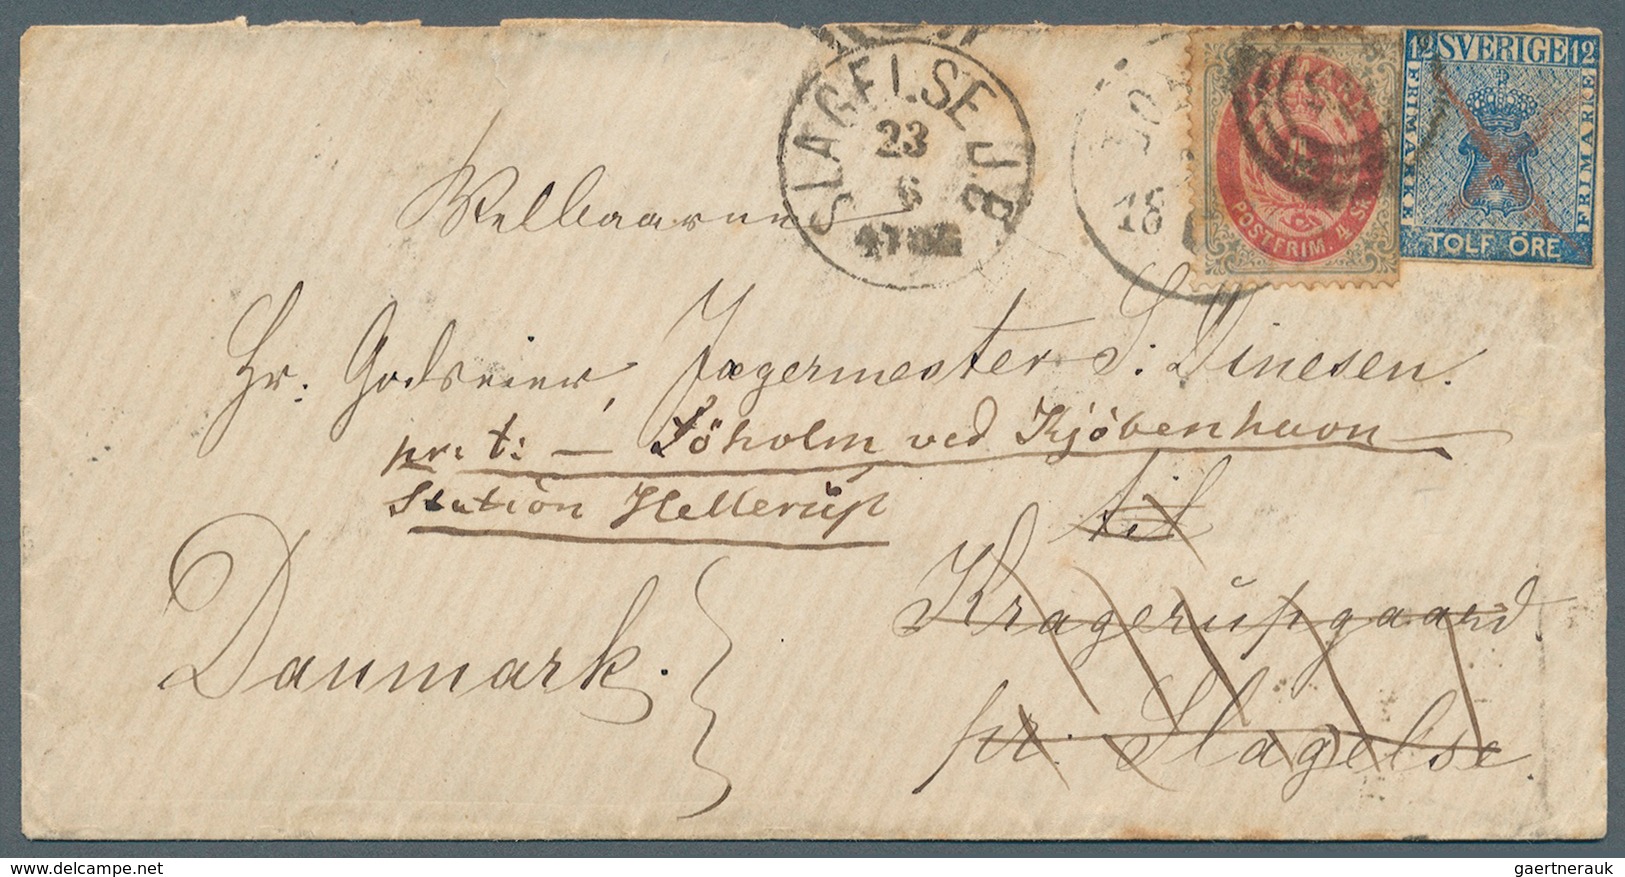 SLAGELSE J B
23
6
4 TOG
18
POSTFRIM. 4 SK
12 SVERIGE 12
FRIMÄRKE FRIMÄRKE
TOLF ÖRE
Welbaarne
Hr. Godseier, Jægermester S. Dinesen.
pr. t: — Söholm ved Kjöbenhavn
Station Hellerup
til
Kragerupgaard.
Danmark.
pr. Slagelse.
gaertnerauk